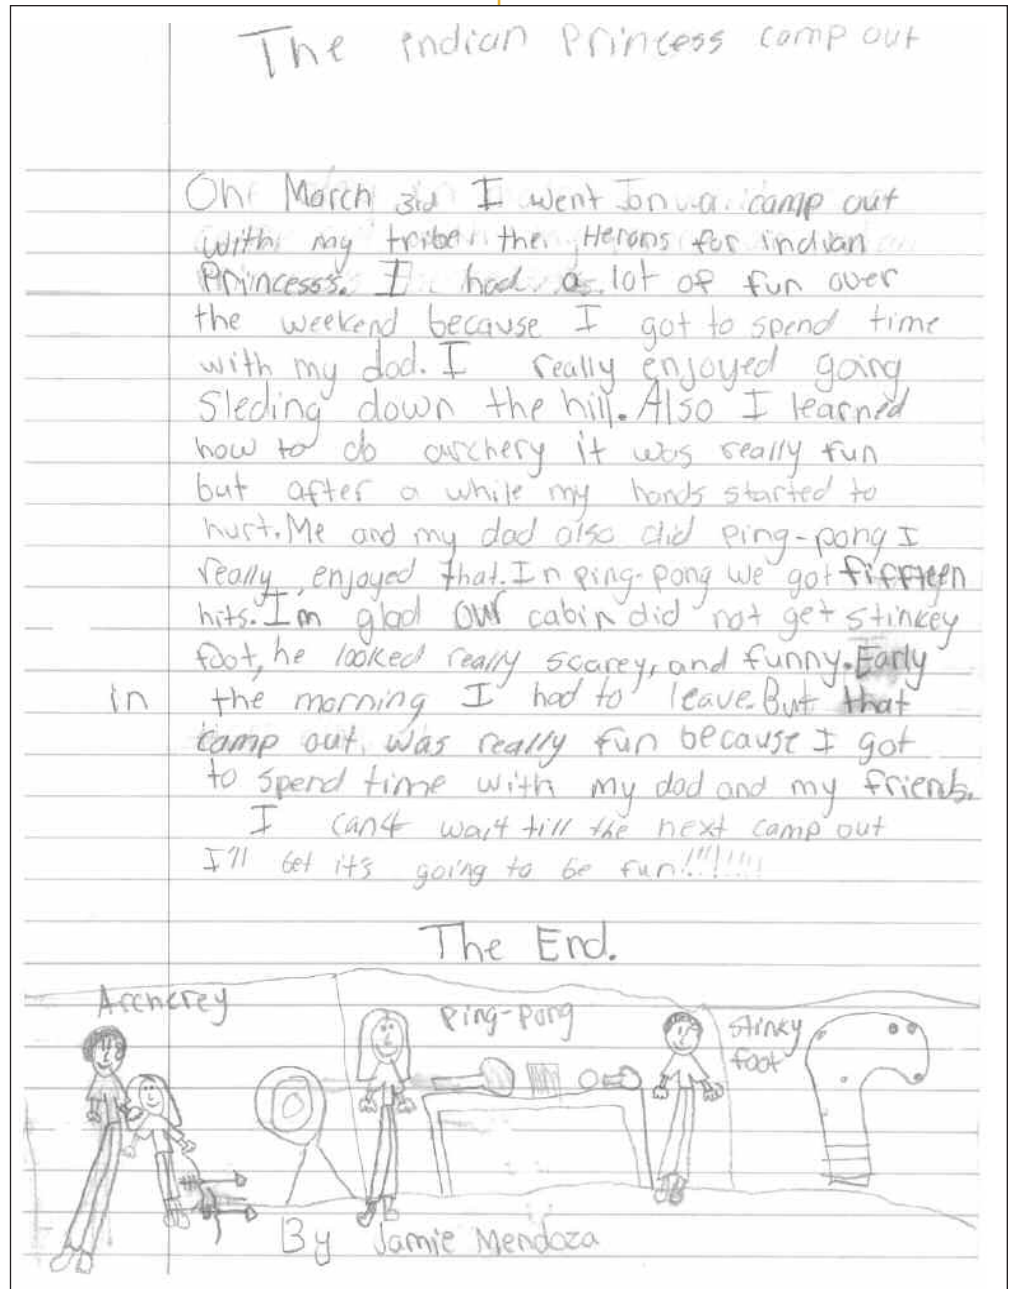 The indian Princess camp out
On March 3rd I went on a camp out
with my tribe the Herons for indian
Princess's. I had a lot of fun over
the weekend because I got to spend time
with my dad. I really enjoyed going
Sleding down the hill. Also I learned
how to do archery it was really fun
but after a while my hands started to
hurt. Me and my dad also did ping-pong I
really enjoyed that. In ping-pong we got fiffteen
hits. Im glad our cabin did not get stinkey
foot, he looked really scarey, and funny. Early
in the morning I had to leave. But that
camp out was really fun because I got
to spend time with my dad and my friends.
I can't wait till the next camp out
I'll bet it's going to be fun!!!!!!!
The End.
Archerey
Ping-Pong
stinky
foot
By Jamie Mendoza